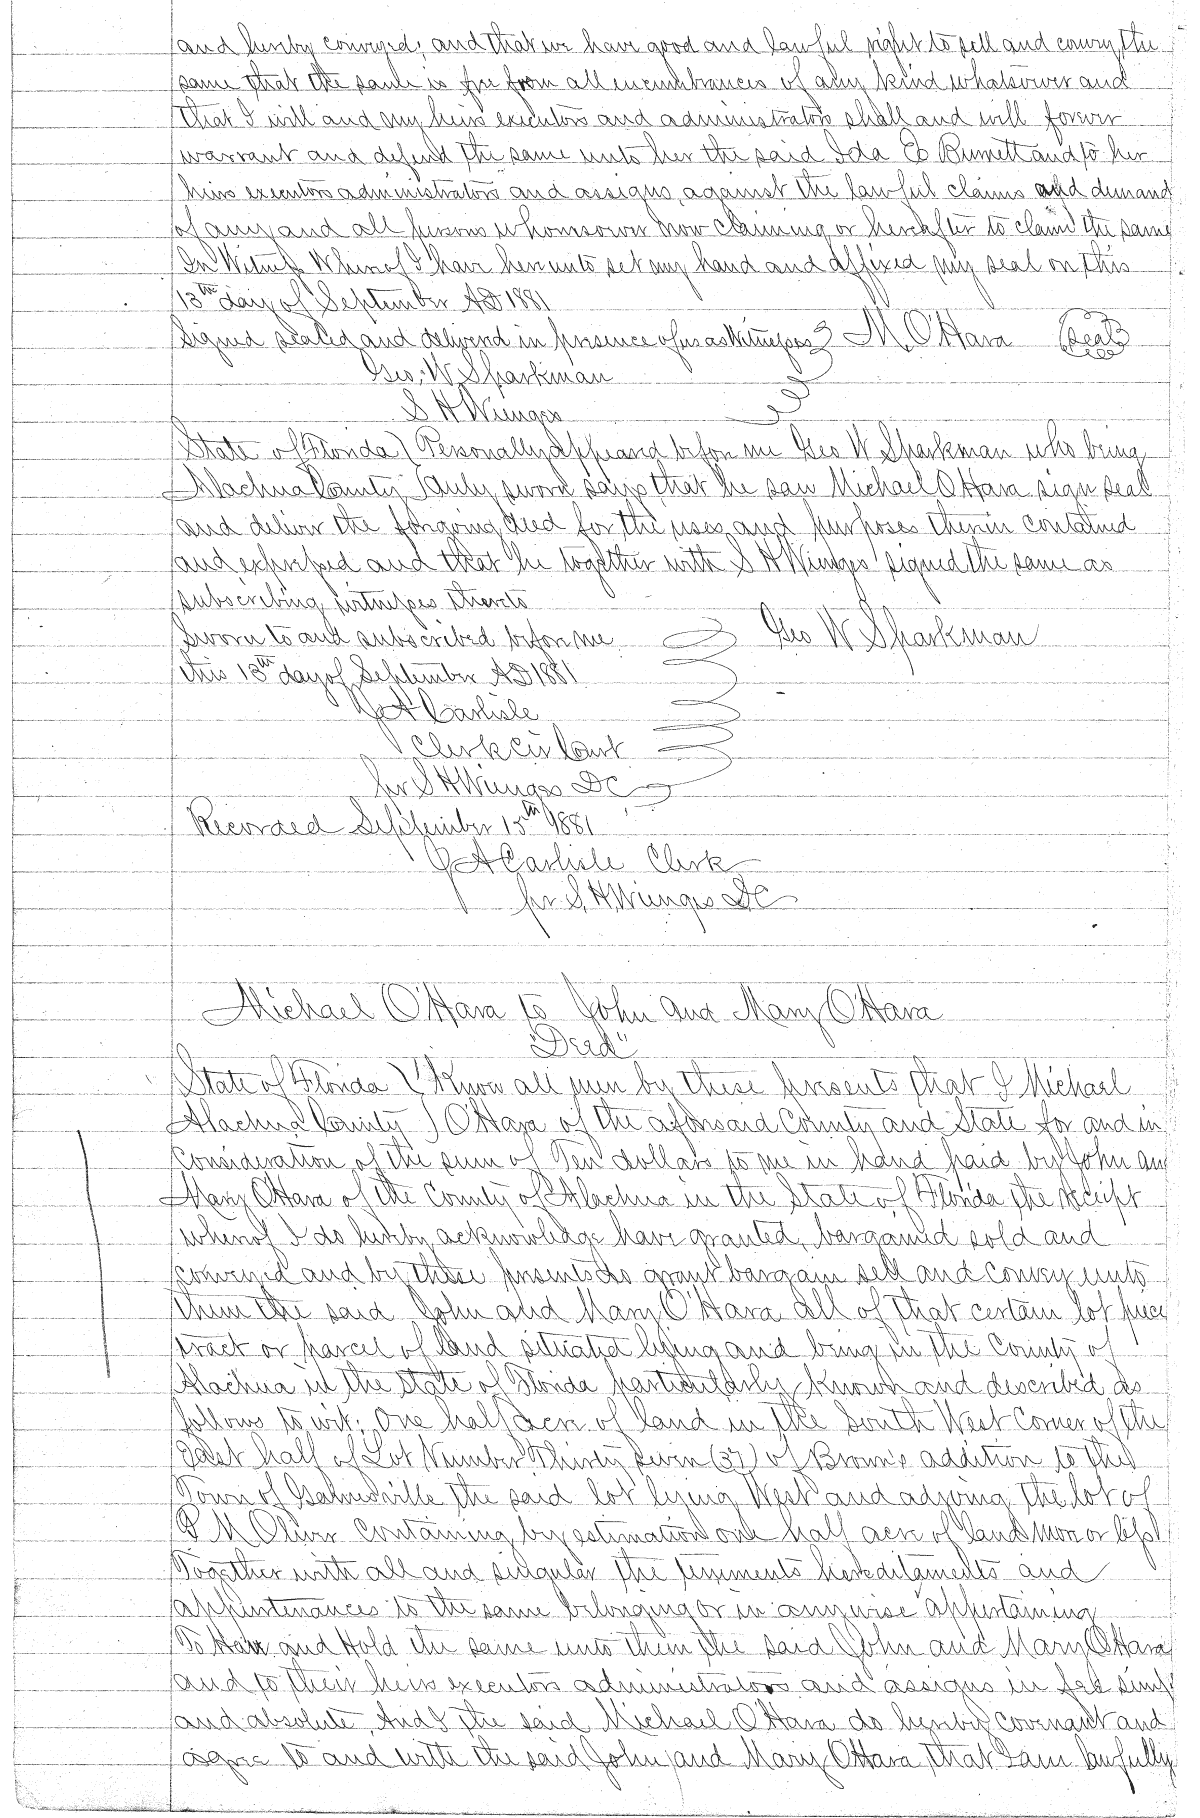 and hereby conveyed; and that we have good and lawful right to sell and convey the
same that the same is free from all incumbrances of any kind whatsoever and
that I will and my heirs executors and administrators shall and will forever
warrant and defend the same unto her the said Ida E Burnett and to her
heirs executors administrators and assigns against the lawful claims and demand
of any and all persons whomsoever now claiming or hereafter to claim the same
In Witness Whereof I have hereunto set my hand and affixed my seal on this
13th day of September AD 1881
Signed sealed and delivered in presence of us as Witnesses } M. O'Hara (seal)
Geo. W. Sparkman
S H Wienges
State of Florida } Personally appeared before me Geo W Sparkman who being
Alachua County } duly sworn says that he saw Michael O'Hara sign seal
and deliver the foregoing deed for the uses and purposes therein contained
and expressed and that he together with S H Wienges signed the same as
subscribing witnesses thereto
Sworn to and subscribed before me } Geo W Sparkman
this 13th day of September AD 1881
J A Carlisle
Clerk Cir Court
for S H Wienges DC
Recorded September 15th 1881
J A Carlisle Clerk
for S. H. Wienges DC
Michael O'Hara to John and Mary O'Hara
"Deed"
State of Florida } Know all men by these presents that I Michael
Alachua County } O'Hara of the aforesaid County and State for and in
consideration of the sum of Ten dollars to me in hand paid by John and
Mary O'Hara of the County of Alachua in the State of Florida the receipt
whereof I do hereby acknowledge have granted, bargained sold and
conveyed and by these presents do grant bargain sell and convey unto
them the said John and Mary O'Hara all of that certain lot piece
tract or parcel of land situated lying and being in the County of
Alachua in the State of Florida particularly known and described as
follows to wit: One half acre of land in the South West corner of the
East half of Lot Number Thirty seven (37) of Brown's addition to the
Town of Gainesville the said lot lying West and adjoing the lot of
P M Oliver containing by estimation one half acre of land more or less
Together with all and singular the tenements hereditaments and
appurtenances to the same belonging or in anywise appertaining
To Have and Hold the same unto them the said John and Mary O'Hara
and to their heirs executors administrators and assigns in fee simple
and absolute. And I the said Michael O'Hara do hereby covenant and
agree to and with the said John and Mary O'Hara that I am lawfully